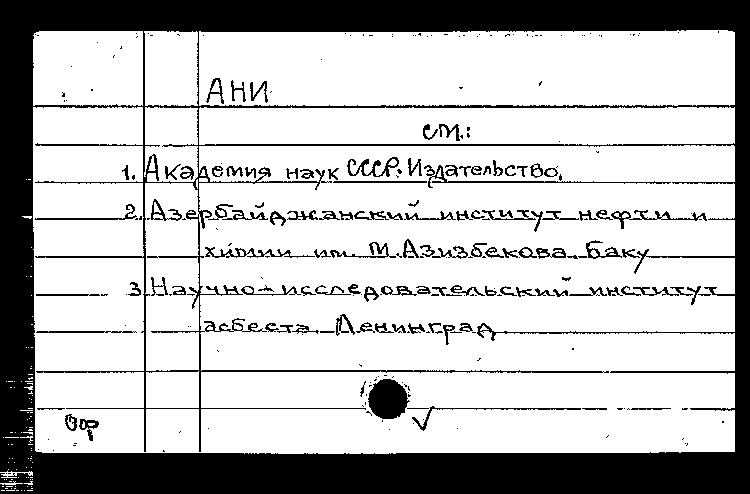 АНИ
см.:
1. Академия наук СССР. Издательство.
2. Азербайджанский институт нефти и
химии им. М. Азизбекова. Баку
3. Научно-исследовательский институт
асбеста. Ленинград.